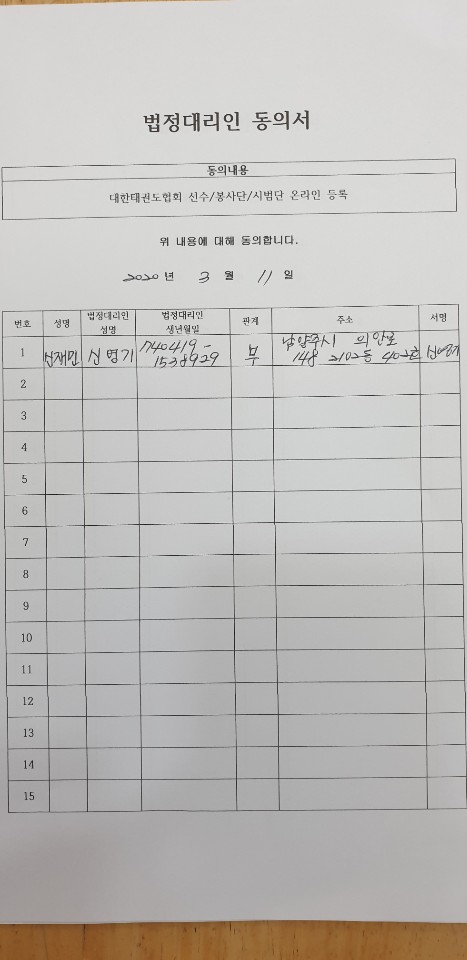 법정대리인 동의서
동의내용
대한태권도협회 선수/봉사단/시범단 온라인 등록
위 내용에 대해 동의합니다.
2020 년 3 월 11 일
번호 성명 법정대리인 성명 법정대리인 생년월일 관계 주소 서명
1 신재민 신명기 740419- 1538929 부 남양주시 의안로 148 2102동 402호 신명기
2
3
4
5
6
7
8
9
10
11
12
13
14
15